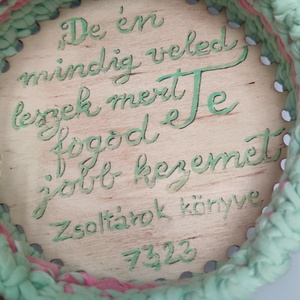 „De én
mindig veled
leszek mert Te
fogod e
jobb kezemet
Zsoltárok könyve
73,23